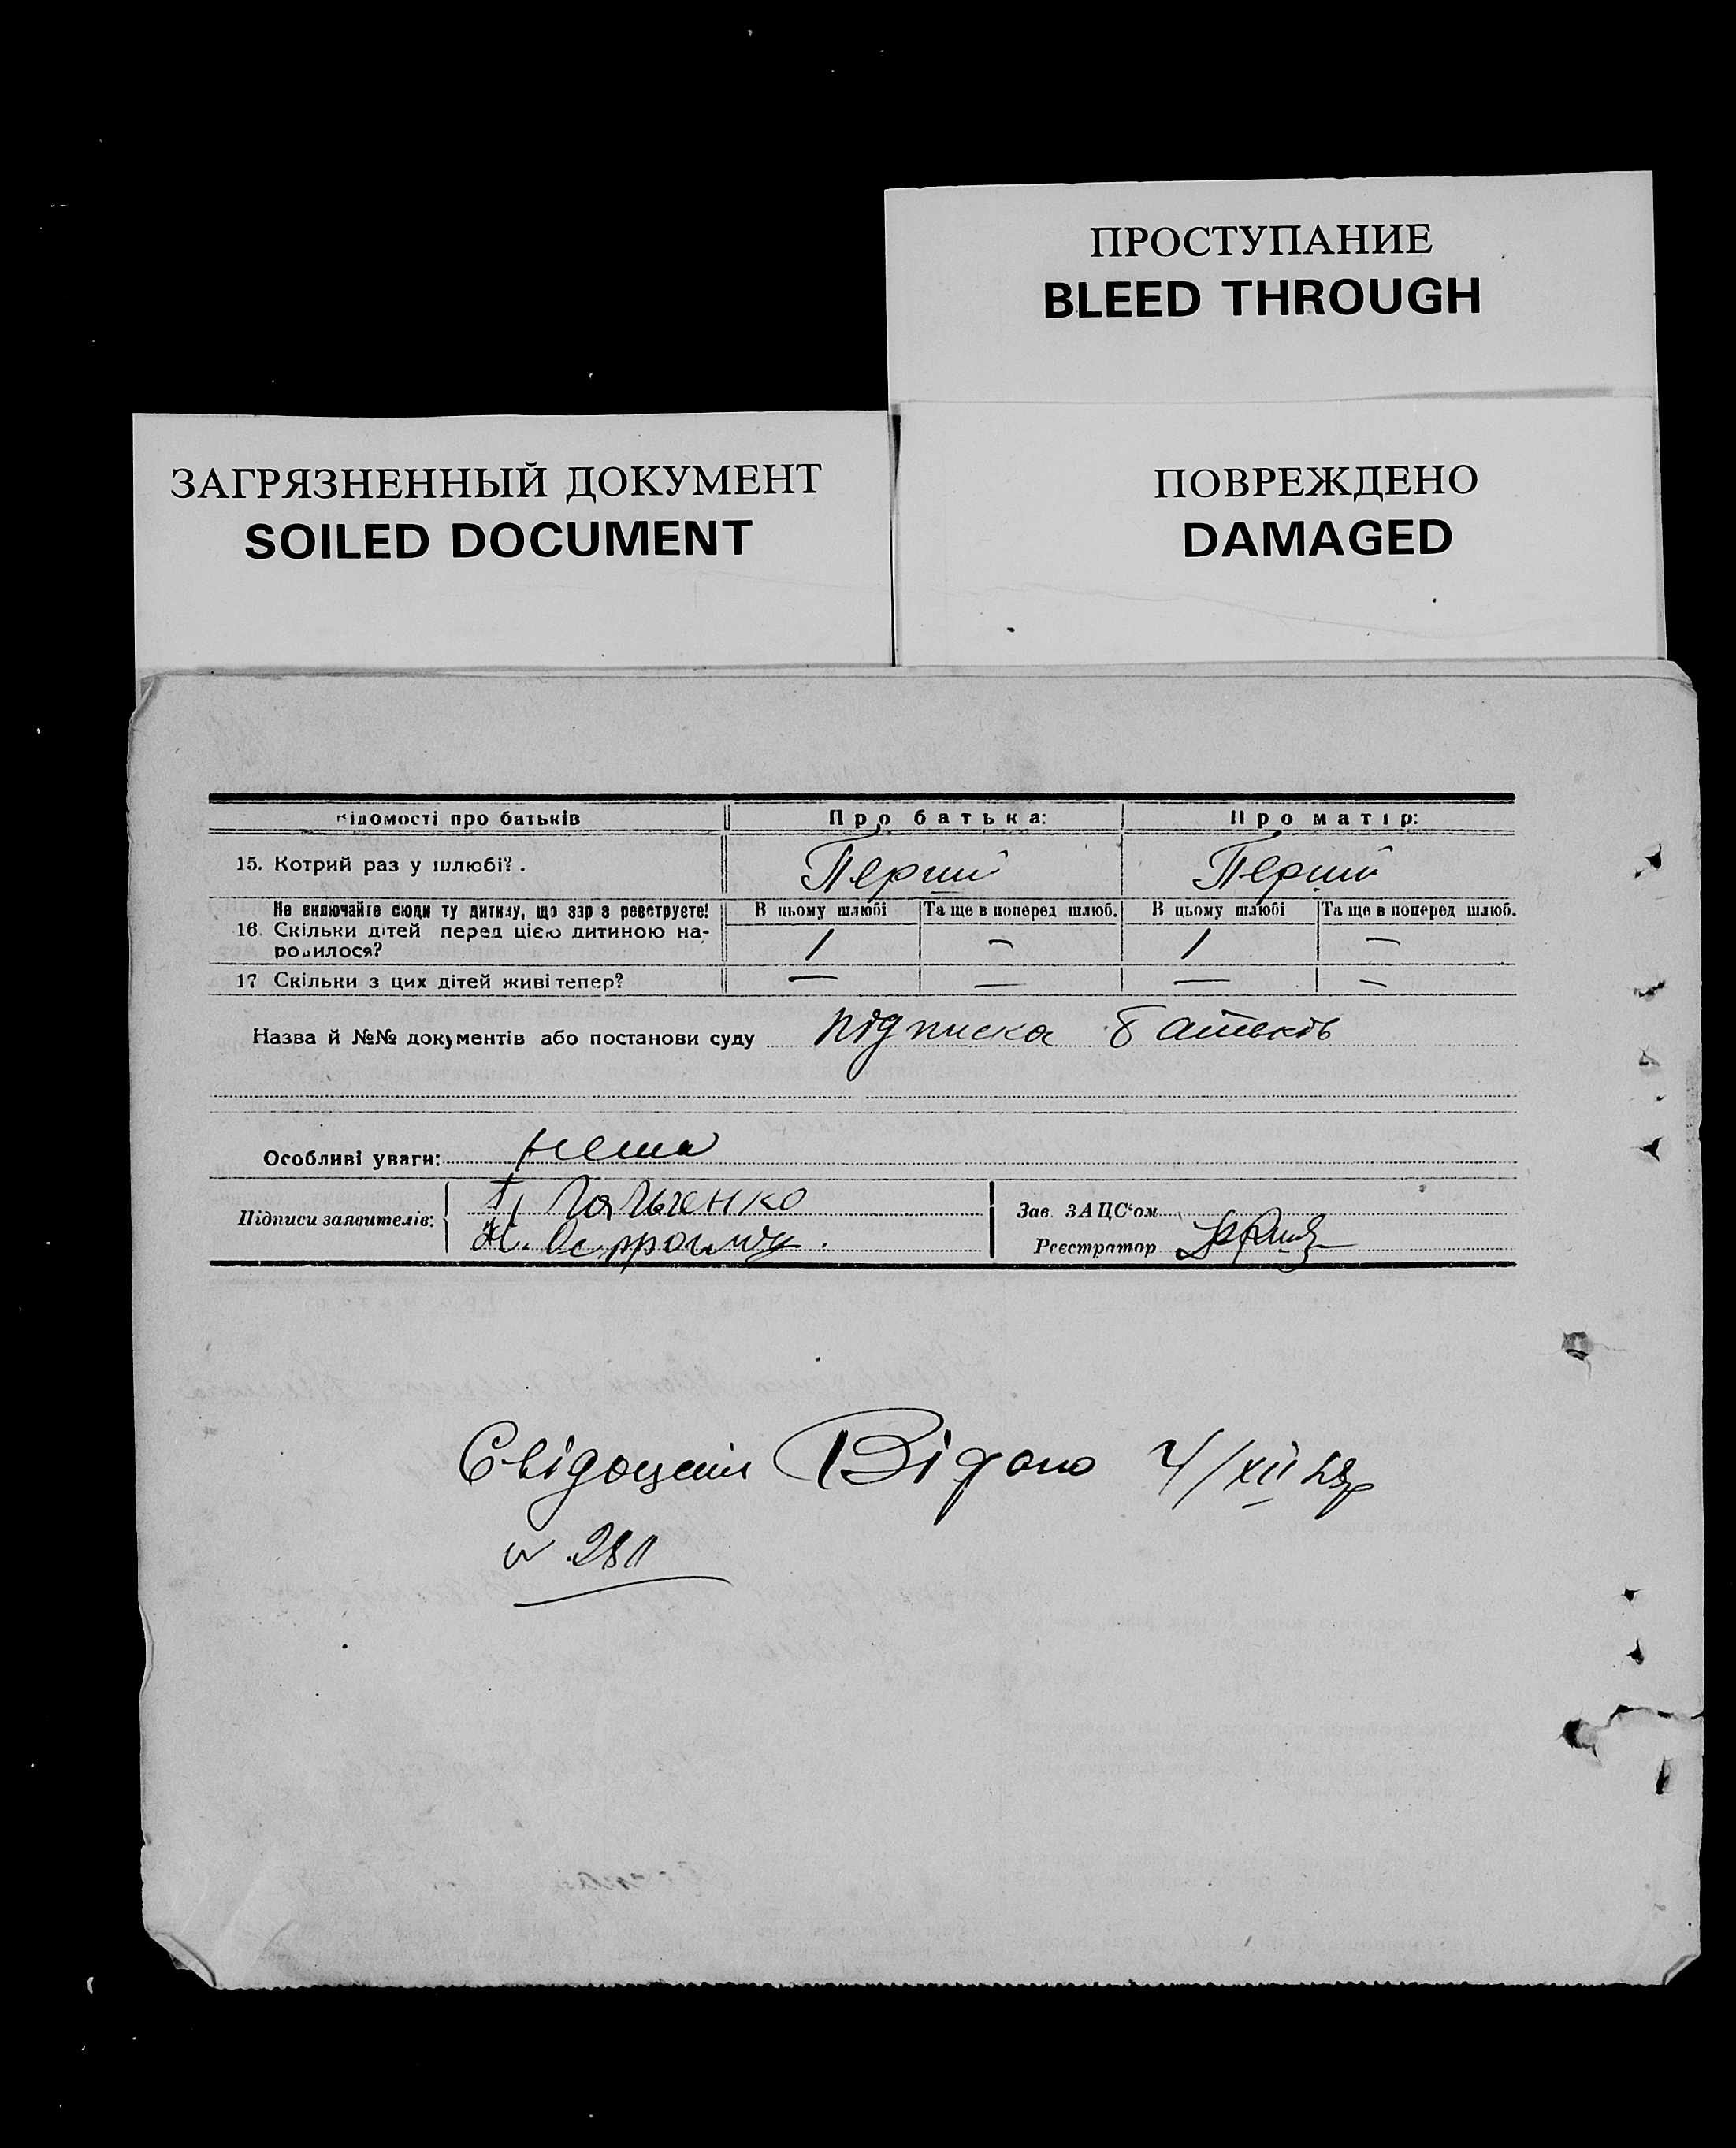 ПРОСТУПАНИЕ
BLEED THROUGH
ЗАГРЯЗНЕННЫЙ ДОКУМЕНТ
SOILED DOCUMENT
ПОВРЕЖДЕНО
DAMAGED
Відомості про батьків Про батька: Про матір:
15. Котрий раз у шлюбі? . Перший Перший
Не включайте сюди ту дитину, що зараз реєструєте! В цьому шлюбі Та ще в поперед шлюб. В цьому шлюбі Та ще в поперед шлюб.
16. Скільки дітей перед цією дитиною на- 1 — 1 —
родилося?
17 Скільки з цих дітей живі тепер? — — — —
Назва й №№ документів або постанови суду підписка батьків
Особливі уваги: нема
Підписи заявителів:
Зав. ЗАЦС‘ом
Реєстратор
Свідоцтв Відано 4/XII
№ 281